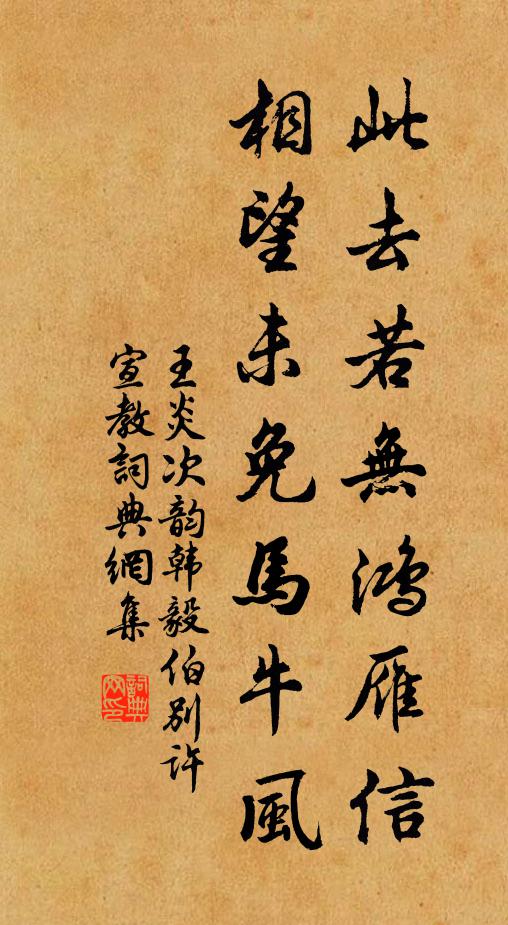 此去若無鴻雁信
相望未免馬牛風
王炎次韵韩毅伯别许
宣教詞典網集
詞典網印